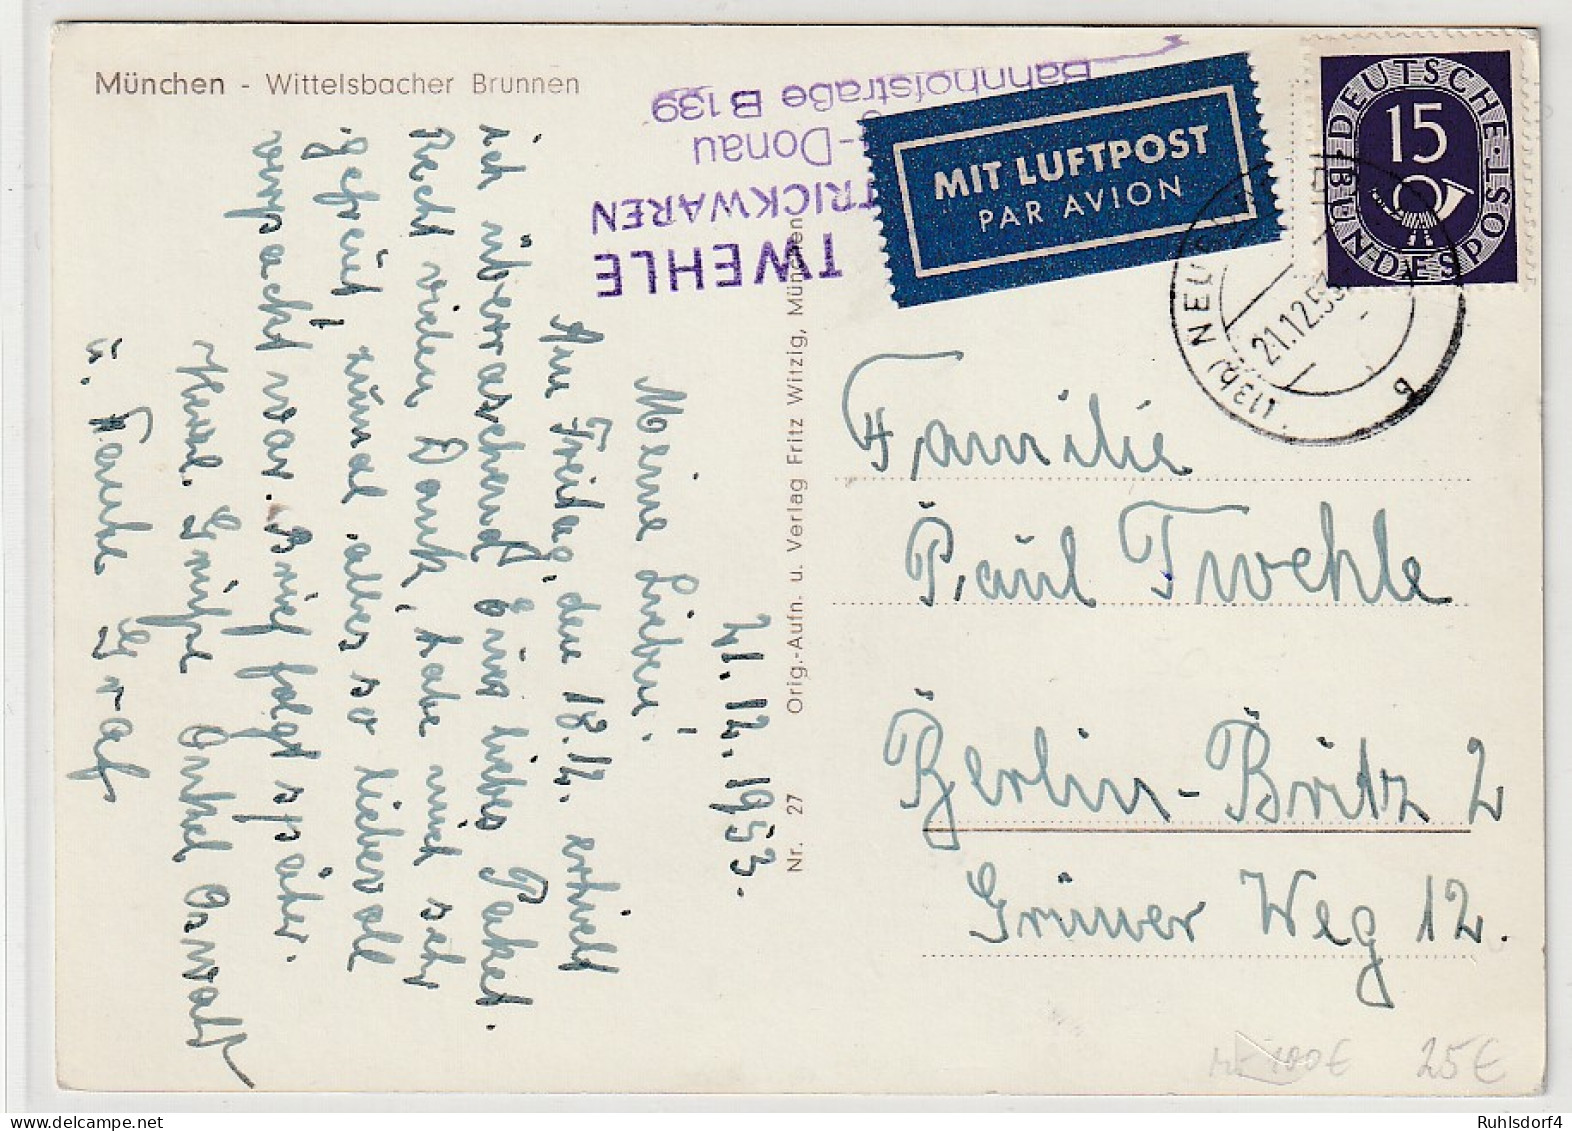 München - Wittelsbacher Brunnen
TWEHLE
TRICKWAREN
-Donau
Bahnhofstraße B 139
MIT LUFTPOST
PAR AVION
DEUTSCHE·POST·BUNDESPOST
15
(13b) NEU
21.12.53
a
21.12.1953.
Meine Lieben!
Am Freitag, den 18.12. erhielt
ich überraschend Euer liebes Paket.
Recht vielen Dank, habe mich sehr
gefreut, zumal alles so liebevoll
verpackt war. Brief folgt später.
Herzl. Grüße Onkel Oswald
u. Tante Graf
Nr. 27 Orig.-Aufn. u. Verlag Fritz Witzig, München
Familie
Paul Twehle
Berlin-Britz 2
Grüner Weg 12.
100€ 25€
Ruhlsdorf4